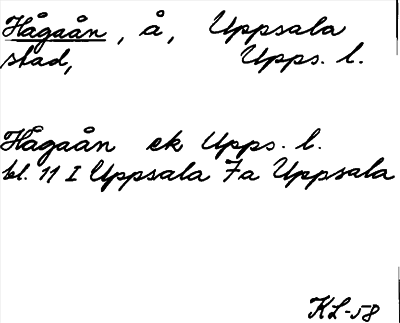 Hågaån, å, Uppsala
stad, Upps. l.
Hågaån ek Upps. l.
bl. 11 I Uppsala 7a Uppsala
KL-58